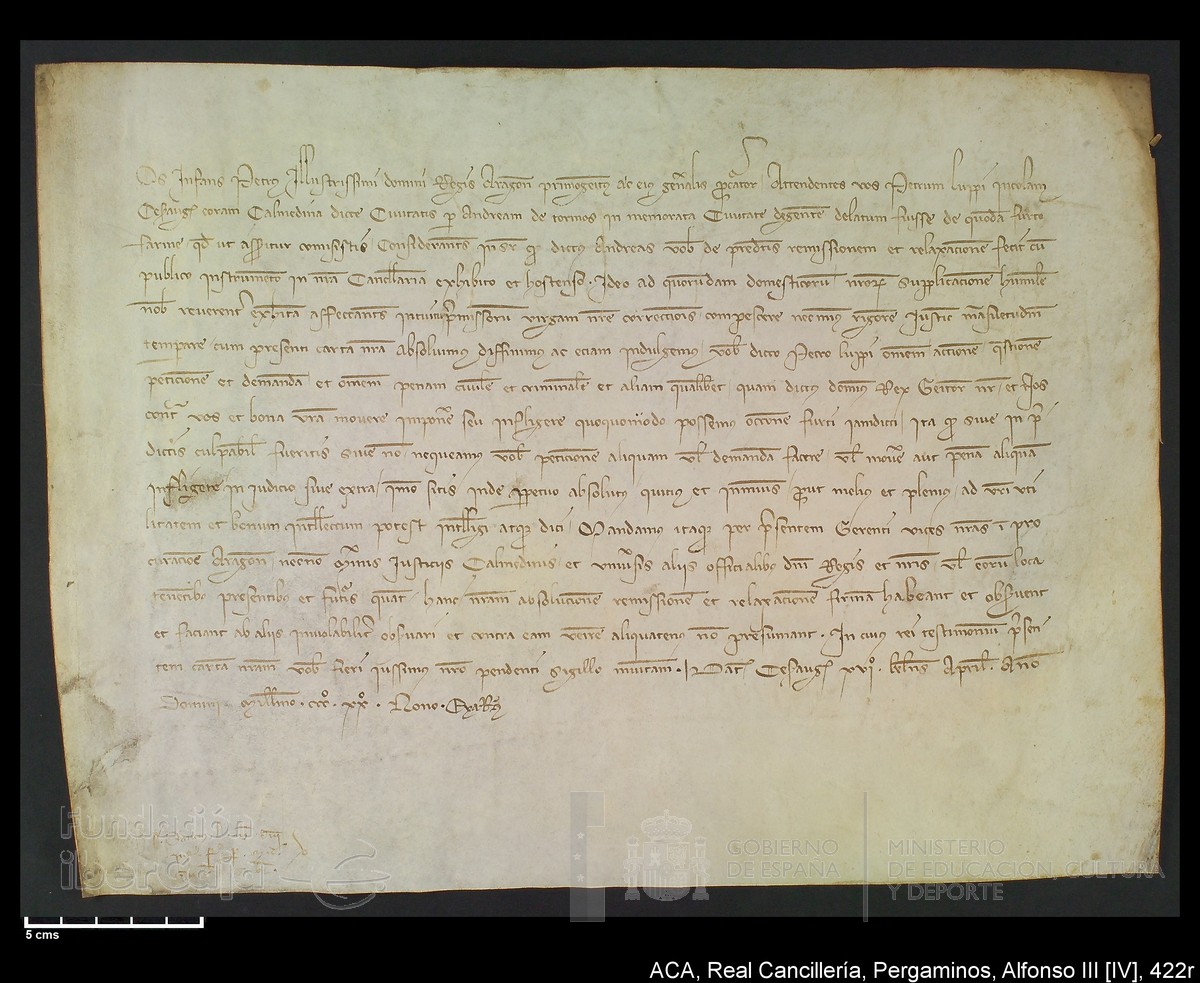 Os Infans Petrus Illustrissimi domini Regis Aragon primogeitus ac eius gen̄alis p̄cūator Attendentes vos Petrum luppi incolam
Cesaugꝰ coram Calmedina dicte Civitatis ꝑ Andream de tormos in memorata Civitate degentē delatum fuisse de quodā furto
farine qd̄ ut asseritur comisistis Considerantes insr̄ qd̄ dictus Andreas vob̄ de pred̄cis remissionem et relaxacionē fecit cū
publico instrumēto in nr̄a Cancellaria exhibito et hostenso. Ideo ad quorundam domesticorū nr̄oꝝ supplicacionē humilē
nob̄ reverent̄ exhibitā affectants intuitu p̄missorū virgam nr̄e correccionis compescere necnon rigorē iustic̄ māsuetudīe
temperare cum presenti carta nr̄a absolvimus diffinimus ac eciam indulgemus vob̄ dicto Petro luppi om̄em accionē q̄stionē
peticionē et demandā et om̄em penam civilē et criminalē et aliam qualibet quam dictus domīus Rex Genitor nr̄ et Nos
cont̄ vos et bona vr̄a movere impon̄e seu infligere quoquomodo possemus occōne furti iamdicti ita qd̄ sive in p̄
dictis culpabil̄ fueritis sive nō nequeamus vob̄ peticionē aliquam vl̄ demandā facere vl̄ mov̄e aut penā aliquā
infligere in iudicio sive extra imo sitis inde ꝑpetuo absolutus quitius et inmunis prout melius et plenius ad vr̄i uti
litatem et bonum intellectum potest intelligi atqꝫ dici Mandamus itaqꝫ per p̄sentem Gerenti vices nr̄as ī pro
curacioē Aragon necnō Çalmis iusticiis Calmedinis et univ̄sis aliis officialibꝰ dn̄i Regis et nr̄is vl̄ eorū loca
tenētibꝰ presentibꝰ et futuris quat̄ hanc nr̄am absolucionē remissionē et relaxacionē firmā habeant et observent
et faciant ab aliis inviolabilit̄ observari et contra eam venire aliquatenus nō presumant. In cuius rei testimoniū p̄sen
tem cartā nr̄am vob̄ fieri iussimus nr̄o pendenti sigillo munitam. Dat̄ Cesaugꝰ xvıº. kl̄ns April. Anō
Domini Millmo. cccº. xxº. Nono. Exᵃ Rꝰ
5 cms
Fundación
iberCaja
GOBIERNO
DE ESPAÑA
MINISTERIO
DE EDUCACIÓN, CULTURA
Y DEPORTE
ACA, Real Cancillería, Pergaminos, Alfonso III [IV], 422r